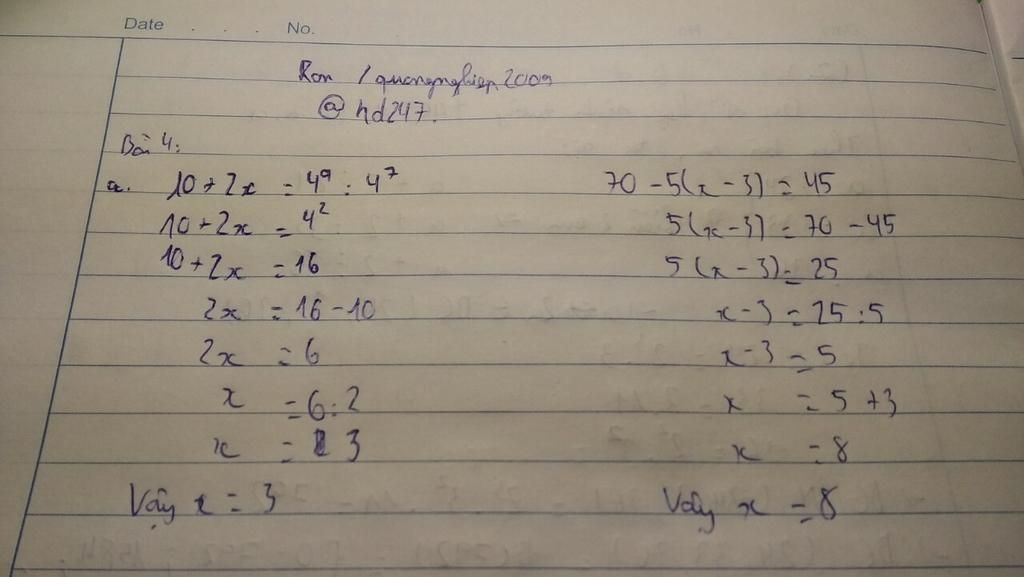 Date . . . No.
Ron / quangnghiep2009
@ hd247.
Bài 4:
a. 10 + 2x = 4⁹ : 4⁷
10 + 2x = 4²
10 + 2x = 16
2x = 16 - 10
2x = 6
x = 6 : 2
x = 3
Vậy x = 3
70 - 5(x - 3) = 45
5(x - 3) = 70 - 45
5(x - 3) = 25
x - 3 = 25 : 5
x - 3 = 5
x = 5 + 3
x = 8
Vậy x = 8